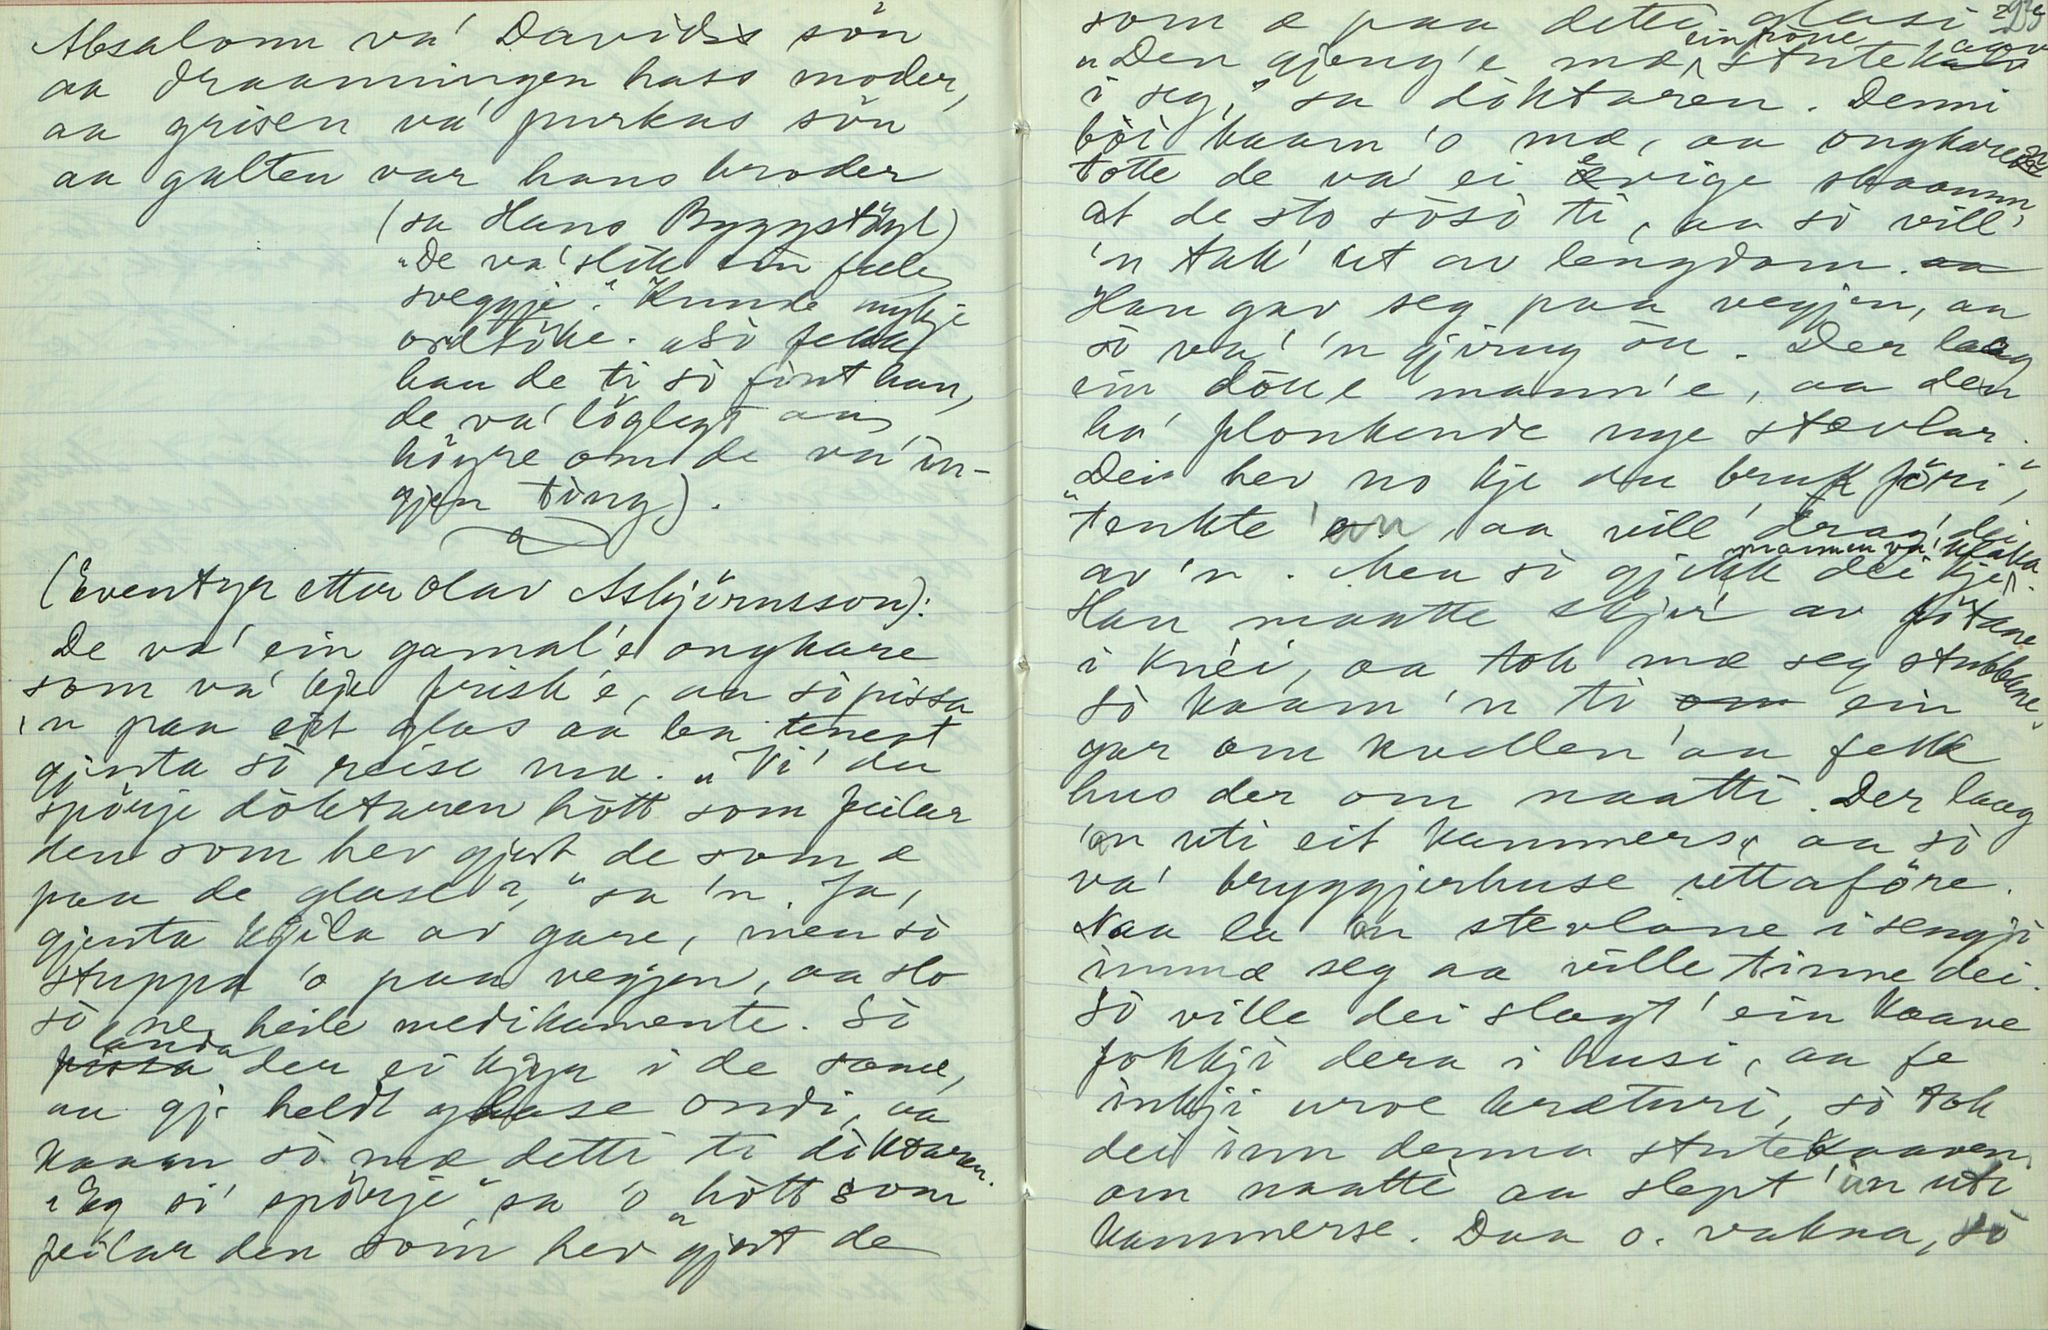 Absalonn va' Davids sön
aa draanningen hass moder,
aa grisen va' purkas sön
aa galten var hans broder
(sa Hans Byggstöyl)
"De va' slik ein fæle
sveggje". Kunde mykje
ordtöke. "Sò fekk
han de ti sò fint han,
de va' löglegt aa
höyre om de va' in-
gjen ting).
(Eventyr etter Olav Asbjörnsson):
De va' ein gamal'e ongkare
som va' kje frisk'e, aa sò pissa
'n paa eit glas aa ba tenest
gjenta sò reise mæ. "Vi' du
spörje döktaren hött som feilar
den som hev gjort de som æ
paa de glase?," sa 'n. Ja,
gjenta kjila av gare, men sò
stuppa 'o paa vegjen, aa slo
sò ne heile medikamente. Sò
landa der ei kjyr i de same,
aa gj. heldt glase ondi, aa
kaam sò mæ detti ti döktaren.
"Eg si' spörje" sa 'o "hött som
feilar den som hev gjort de
som æ paa detti glasi
"Den gjeng'e mæ ein pöne stutekaav
i seg," sa döktaren. Denni
böi kaam 'o mæ, aa ongkaren
totte de va' ei evige skaamm
at de sto sòsò ti, aa sò vill'
'n tak' ut av lengdom.
Han gav seg paa vegjen, aa
sò va' 'n gjivug òn. Der laag
ein döue mann'e, aa den
ha' plonkende nye stevlar.
"Dei hev no kje du bruk föri",
tenkte 'an, aa vill' drag' dei
av 'n. Men sò gjekk dei kje, mannen va' klaka.
Han maatte skjer' av fötane
i knéi, aa tok mæ seg stubbane.
Sò kaam 'n ti ein
gar om kvellen aa fekk
hus der om naatti. Der laag
'n uti eit kammers, aa sò
va' bryggjerhuse uttaföre.
Naa la 'n stevlane i sengji
innmæ seg aa ville tinne dei.
Sò ville dei slagt' ein kaave
fokkji dera i husi, aa fe
inkji urve kræturi, sò tok
dei inn denna stutekaaven
om naatti aa slept 'in uti
kammerse. Daa o. vakna, sò